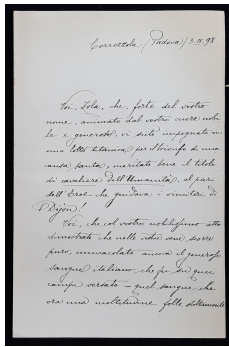 Correzzola (Padova) 3.II.98
Voi, Zola, che, forte del vostro
nome, animato dal vostro cuore nobi-
le e generoso, vi siete impegnato in
una lotta titanica per il trionfo di una
causa santa, meritate bene il titolo
di cavaliere dell'Umanità, al pari
dell'Eroe che guidava i vincitori di
Digione!
Voi, che col vostro nobilissimo atto
dimostrate che nelle vostre vene scorre
puro, immacolato ancora il generoso
sangue italiano, che fu su quei
campi versato - quel sangue che
ora una moltitudine folle